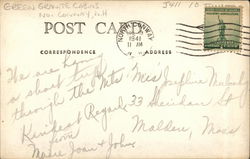 GREEN GRANITE CABINS
NO. CONWAY, N.H.
POST CARD
NORTH CONWAY
1941
11 AM
CORRESPONDENCE
ADDRESS
We are having
a short trip
through the Mts
Kindest Regards
from
Marie Joan & John
Miss Josephine
33 Sheridan St
Malden, Mass